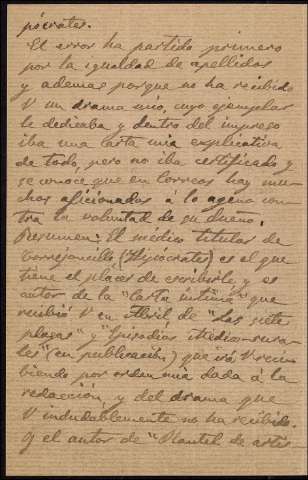 pócrates.
El error ha partido primero
por la igualdad de apellidos
y ademas porque no ha recibido
V un drama mio, cuyo ejemplar
le dedicaba y dentro del impreso
iba una carta mia explicativa
de todo, pero no iba certificado y
se conoce que en Correos hay mu-
chos aficionados á lo ageno con-
tra la voluntad de su dueño.
Resumen: El médico titular de
Torrejoncillo (Hipócrates) es el que
tiene el placer de escribirle y es
autor de la "Carta intima" que
recibió V en Abril de "Las siete
plagas" y "Episodios Medico-rura-
les" (en publicacion) que irá V reci-
biendo por orden mia dada á la
redacción, y del drama que
V indudablemente no ha recibido.
Y el autor de "Plantel de artis-